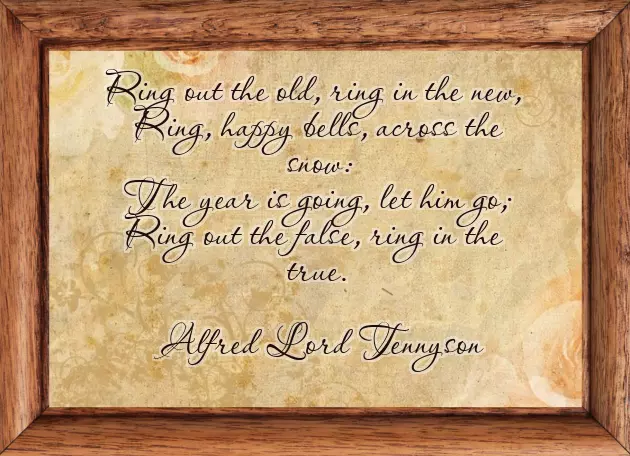 Ring out the old, ring in the new,
Ring, happy bells, across the
snow:
The year is going, let him go;
Ring out the false, ring in the
true.
Alfred Lord Tennyson